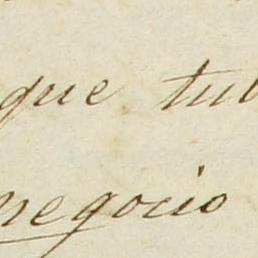 que tub
negocio